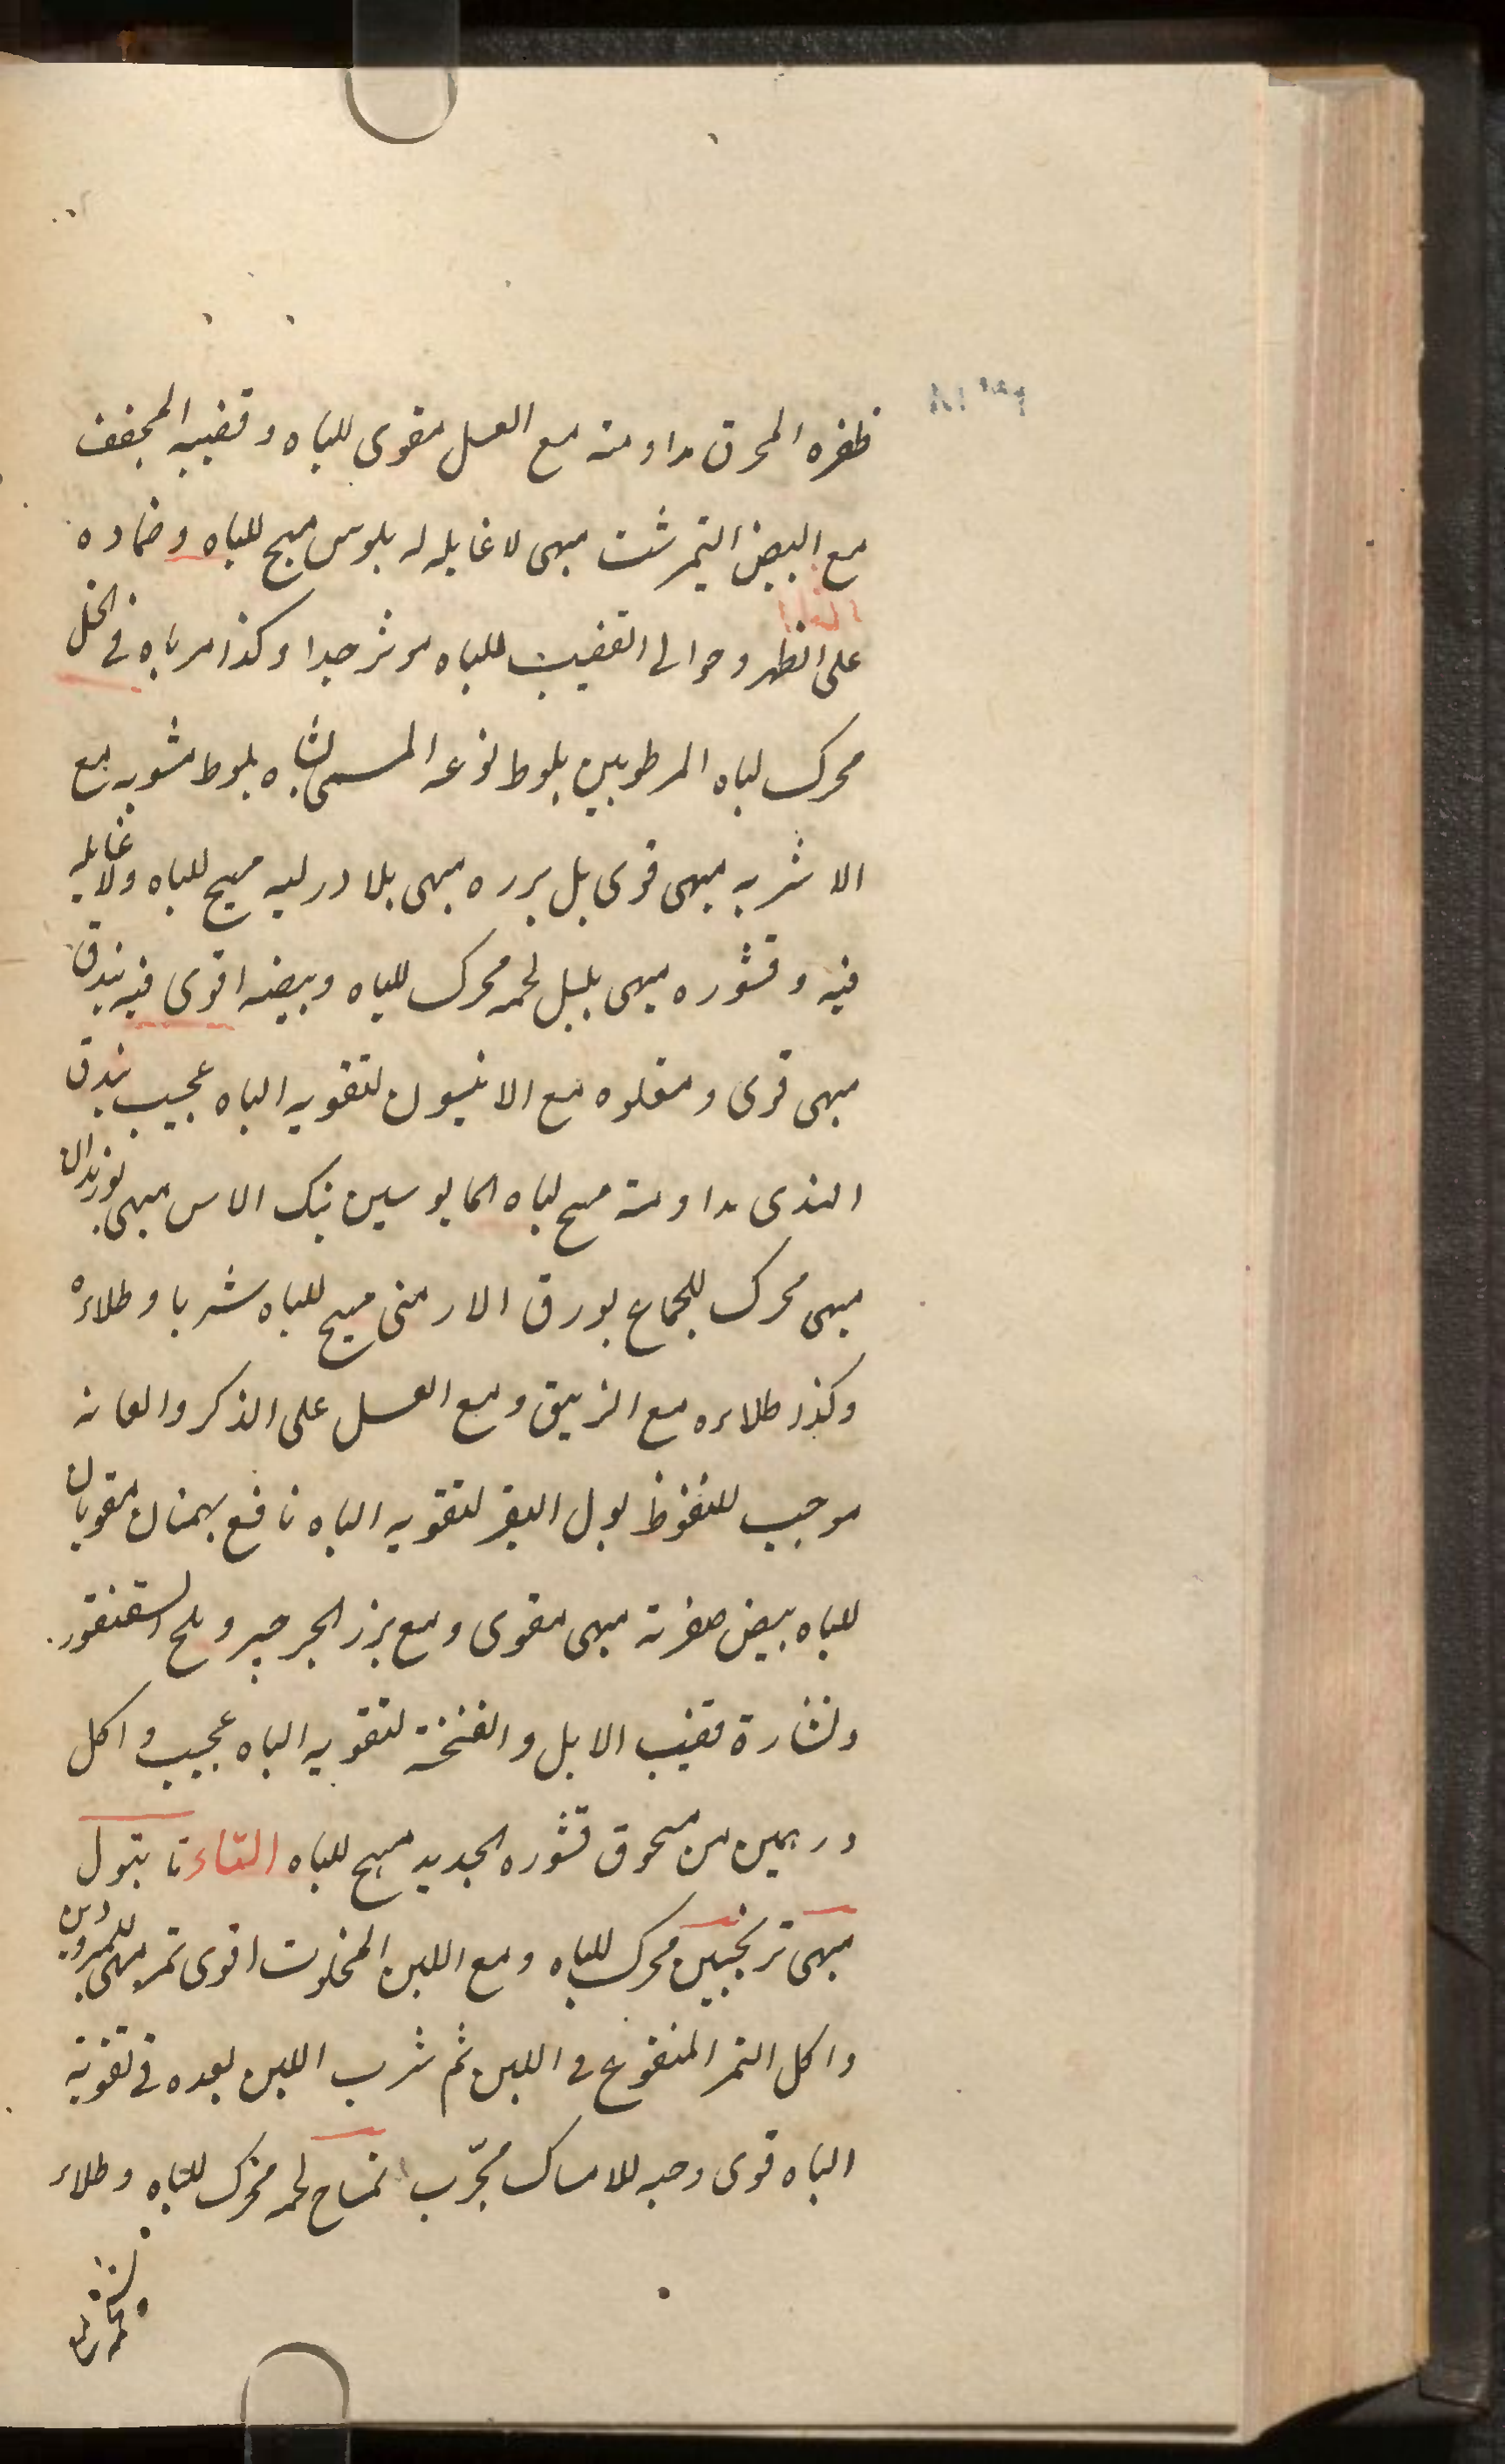 ظفره المحرق مداومته مع العسل مقوى للباه وقضيبه المجفف
مع البيض النيمرشت مبهى لا غايله له بلوس مهيج للباه وضماده
على الظهر وحوالى القضيب للباه موثر جدا وكذا مرباه فى الخل
محرك لباه المرطوبين بلوط نوعه المسمى بشاه بلوط مشويه مع
الاشربه مبهى قوى بل برره مبهى بلادر لبه مهيج للباه ولا غايله
فيه وقشوره مبهى بلبل لحمه محرك للباه وبيضه اقوى فيه بندق
مبهى قوى ومقلوه مع الانيسون لتقويه الباه عجيب بندق
الهندى مداومته مهيج لباه المايوسين بنك الاس مبهى بوزيدان
مبهى محرك للجماع بورق الارمنى مهيج للباه شربا وطلاءً
وكذا طلاءه مع الزيبق ومع العسل على الذكر والعانه
موجب للنغوظ بول البقر لتقويه الباه نافع بهمنان مقويان
للباه بيض صفرته مبهى مقوى ومع بزر الجرجير وملح السقنقور
ونشارة قضيب الابل والفنخة لتقويه الباه عجيب واكل
درهمين من مسحوق قشوره الجديد مهيج للباه التاء تانبول
مبهى ترنجبين محرك للباه ومع اللبن المخلوت اقوى تمر مبهى للمبرودين
واكل التمر المنقوع فى اللبن ثم شرب اللبن بعده فى تقوية
الباه قوى وحبه للامساك مجرّب تمساح لحمه محرك للباه وطلاء